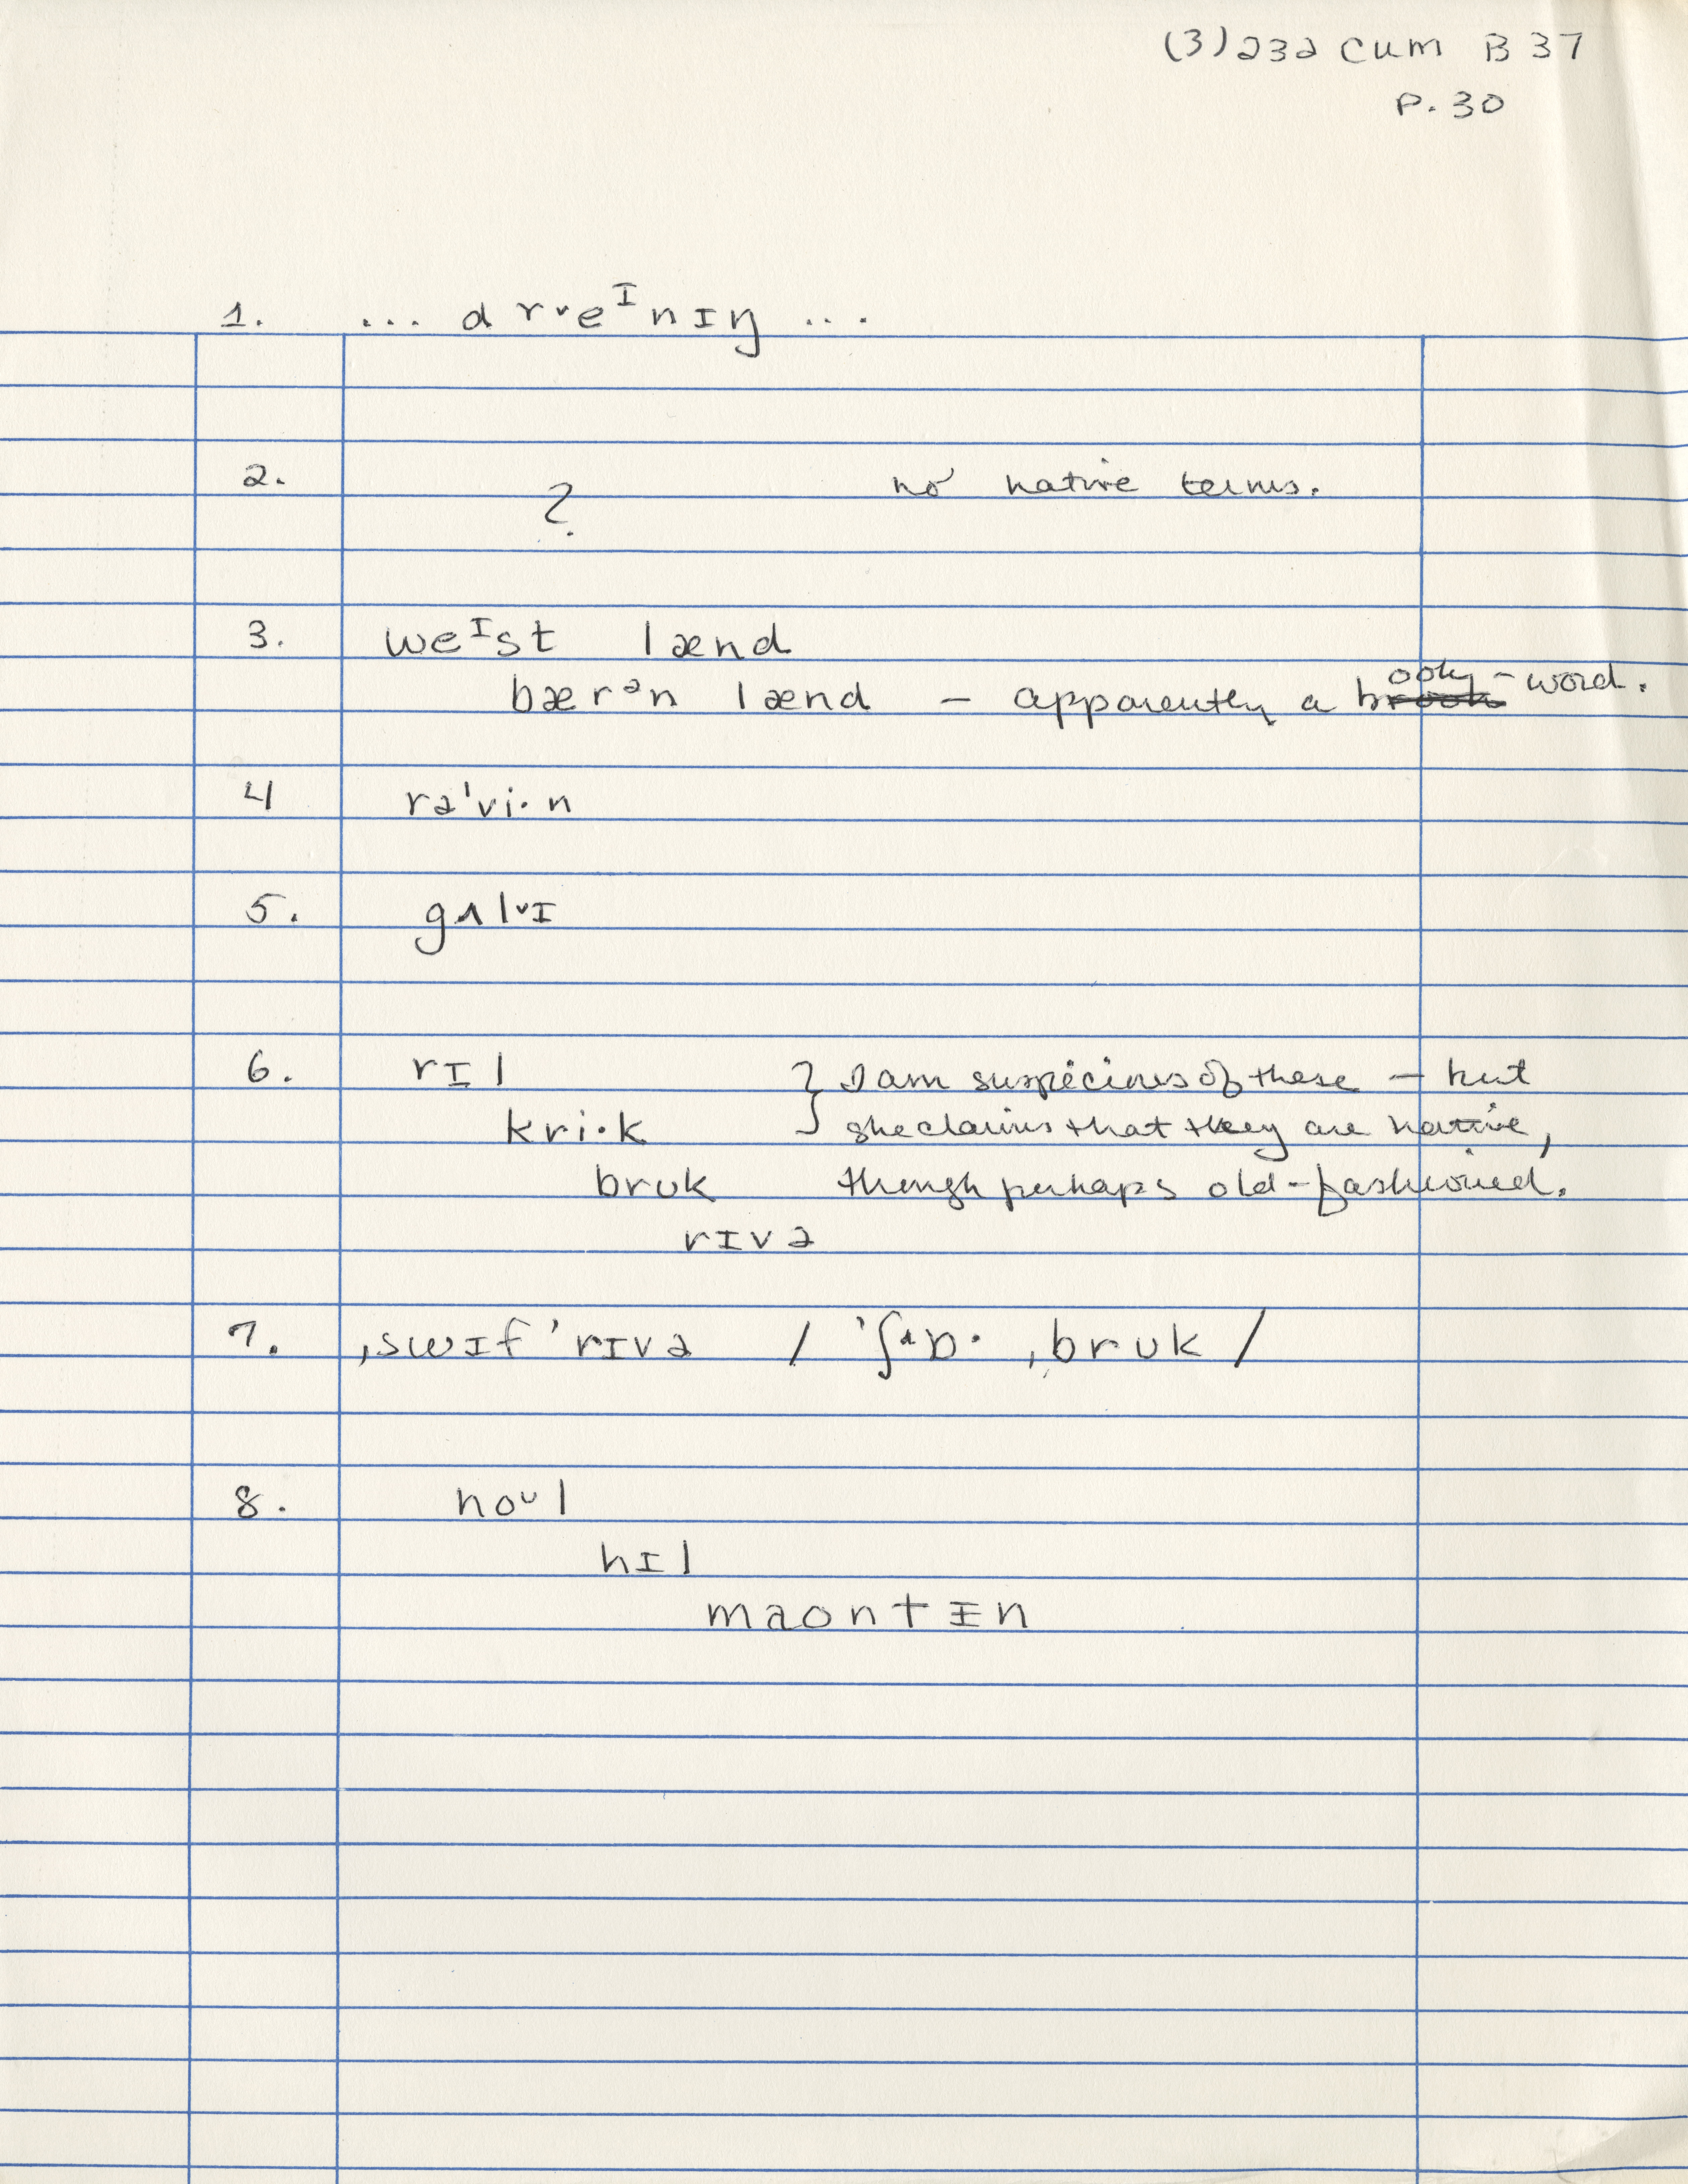 (3) 232 CUM B 37
P. 30
1. ... drᵛeᴵnɪŋ ...
2. ? no native terms.
3. weᴵst lænd
bærᵊn lænd – apparently a booky-word.
4 rə'vi·n
5. gʌlᵛɪ
6. rɪl } I am suspicious of these – but
kri·k she claims that they are native,
bruk though perhaps old-fashioned.
rɪvə
7. ˌswɪf 'rɪvə / 'ʃ ɒ· ˌbrʊk /
8. noᶸl
hɪl
maontɪn